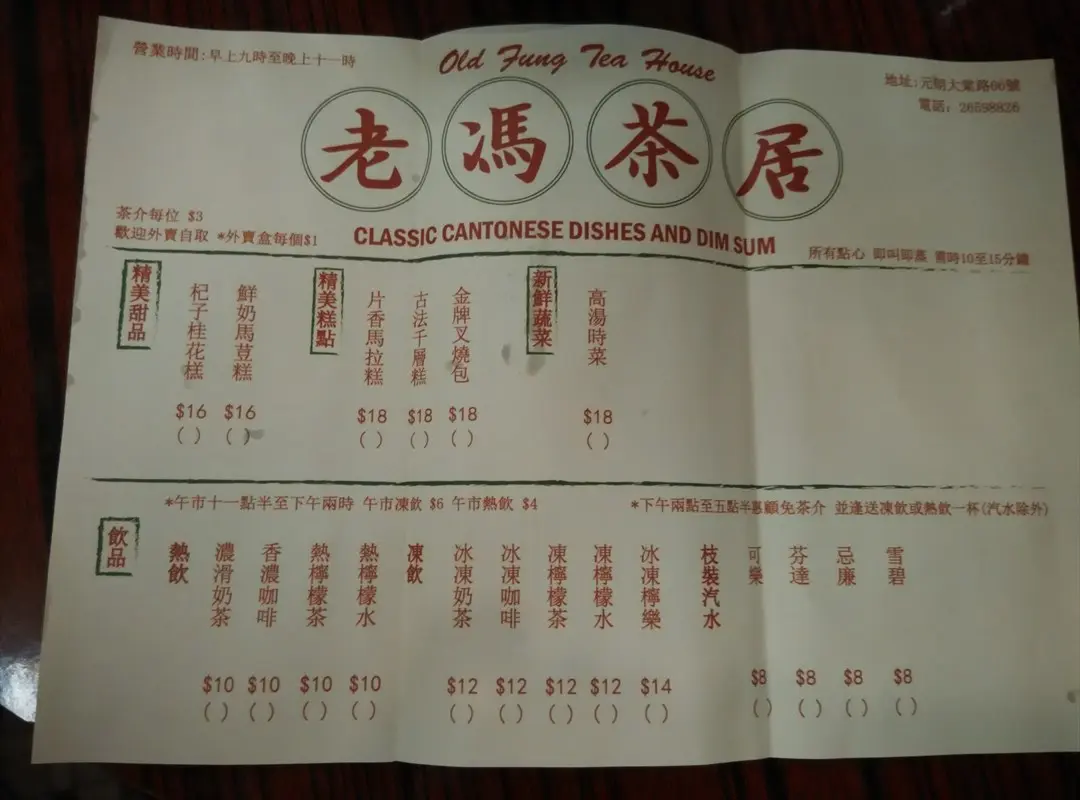 營業時間:早上九時至晚上十一時
Old Fung Tea House
地址:元朗大棠路66號
電話: 26598826
老馮茶居
茶介每位 $3
歡迎外賣自取 *外賣盒每個$1
CLASSIC CANTONESE DISHES AND DIM SUM
所有點心 即叫即蒸 需時10至15分鐘
精美甜品
杞子桂花糕 $16 ( )
鮮奶馬荳糕 $16 ( )
精美糕點
片香馬拉糕 $18 ( )
古法千層糕 $18 ( )
金牌叉燒包 $18 ( )
新鮮蔬菜
高湯時菜 $18 ( )
*午市十一點半至下午兩時 午市凍飲 $6 午市熱飲 $4
*下午兩點至五點半惠顧免茶介 並逢送凍飲或熱飲一杯(汽水除外)
飲品
熱飲
濃滑奶茶 $10 ( )
香濃咖啡 $10 ( )
熱檸檬茶 $10 ( )
熱檸檬水 $10 ( )
凍飲
冰凍奶茶 $12 ( )
冰凍咖啡 $12 ( )
凍檸檬茶 $12 ( )
凍檸檬水 $12 ( )
冰凍檸樂 $14 ( )
枝裝汽水
可樂 $8 ( )
芬達 $8 ( )
忌廉 $8 ( )
雪碧 $8 ( )